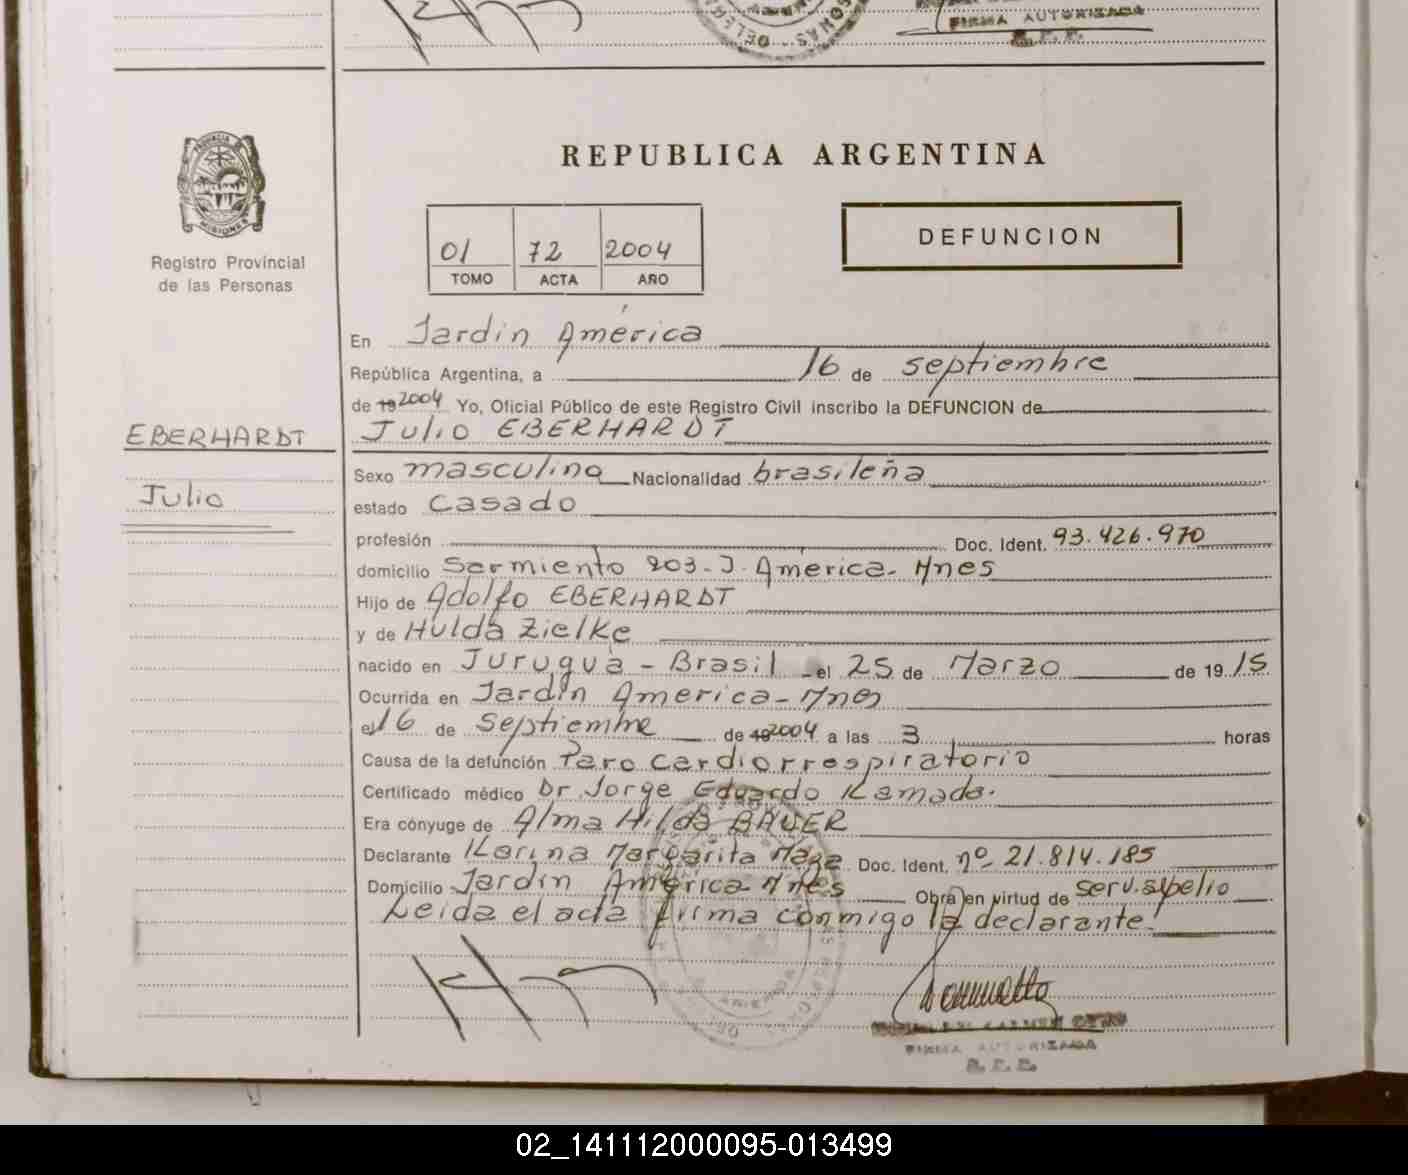 FIRMA AUTORIZADA
R. P. P.
PROVINCIA DE
MISIONES
Registro Provincial
de las Personas
REPUBLICA ARGENTINA
01 72 2004
TOMO ACTA AÑO
DEFUNCION
En Jardín América
República Argentina, a 16 de septiembre
de 19 2004 Yo, Oficial Público de este Registro Civil inscribo la DEFUNCION de
EBERHARDT
Julio EBERHARDT
Julio
Sexo masculino Nacionalidad brasileña
estado Casado
profesión Doc. Ident. 93.426.970
domicilio Sarmiento 203-J. América- Mnes
Hijo de Adolfo EBERHARDT
y de Hulda Zielke
nacido en Juruguà - Brasil el 25 de Marzo de 19 15
Ocurrida en Jardín America-Mnes
el 16 de septiembre de 19 2004 a las 3 horas
Causa de la defunción Paro cardiorrespiratorio
Certificado médico Dr. Jorge Eduardo Kamada.
Era cónyuge de Alma Hilda BAUER
Declarante Karina Margarita Maza Doc. Ident. nº 21.814.185
Domicilio Jardín América-Mnes Obra en virtud de serv. sepelio
Leida el acta firma conmigo la declarante.
FIRMA AUTORIZADA
R. P. P.
02_141112000095-013499